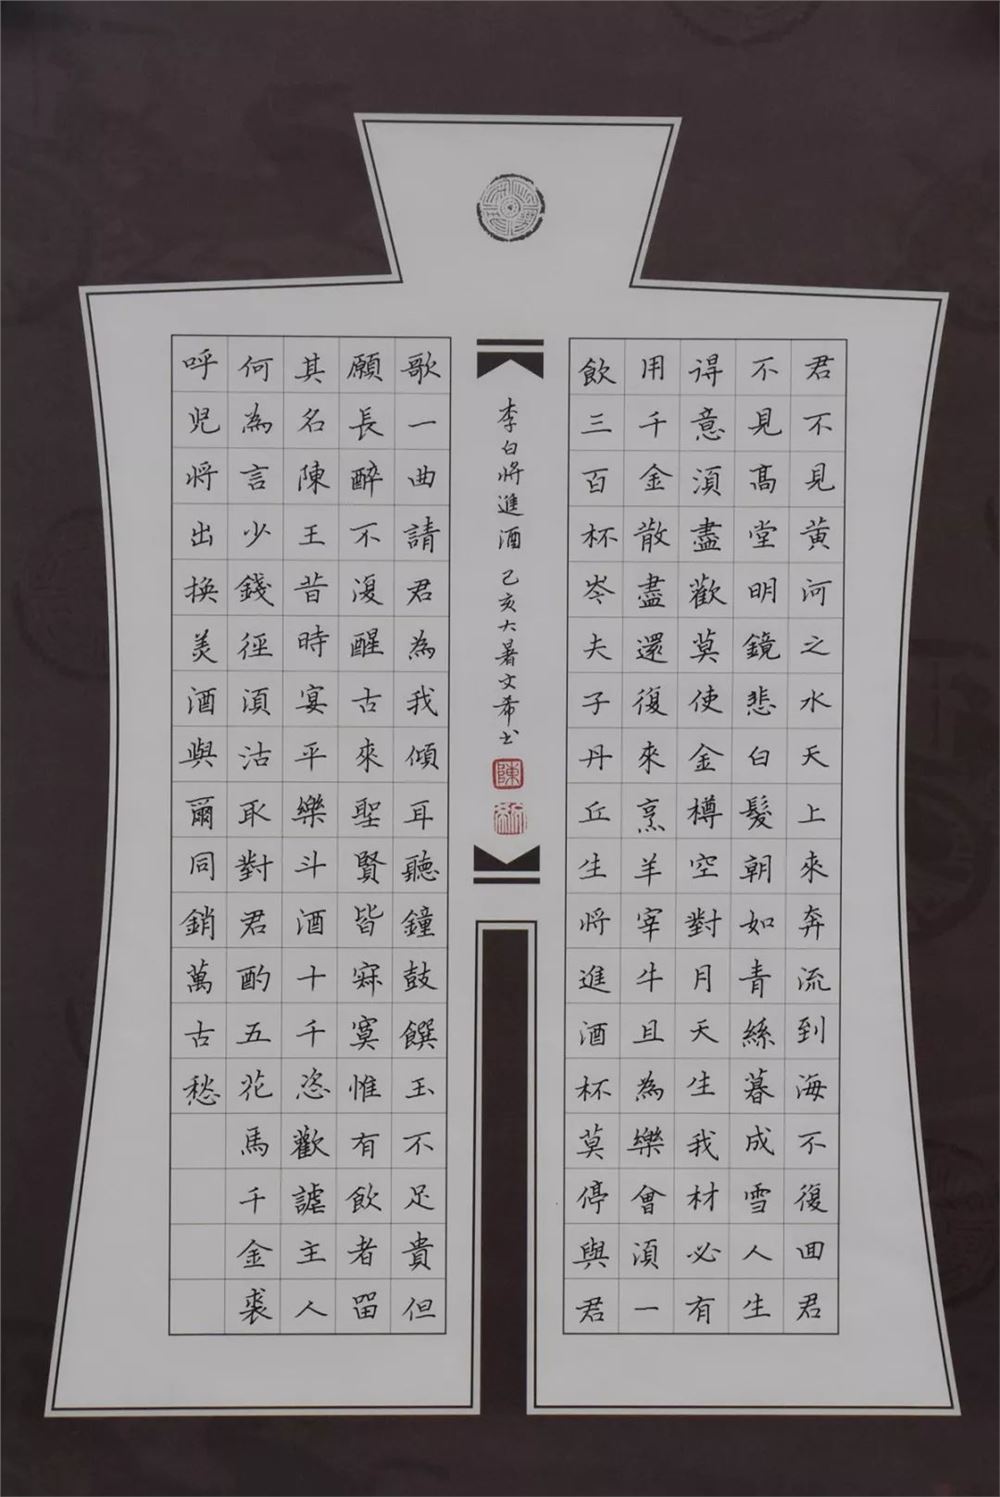 君不見黄河之水天上來奔流到海不復囬君
不見髙堂明鏡悲白髮朝如青絲暮成雪人生
得意須盡歡莫使金樽空對月天生我材必有
用千金散盡還復來烹羊宰牛且為樂會須一
飲三百杯岑夫子丹丘生将進酒杯莫停與君
李白将進酒 己亥大暑文希书
陳
歌一曲請君為我傾耳聽鐘鼓饌玉不足貴但
願長醉不復醒古來聖賢皆寂寞惟有飲者留
其名陳王昔時宴平樂斗酒十千恣歡謔主人
何為言少錢徑須沽取對君酌五花馬千金裘
呼児将出換美酒與爾同銷萬古愁